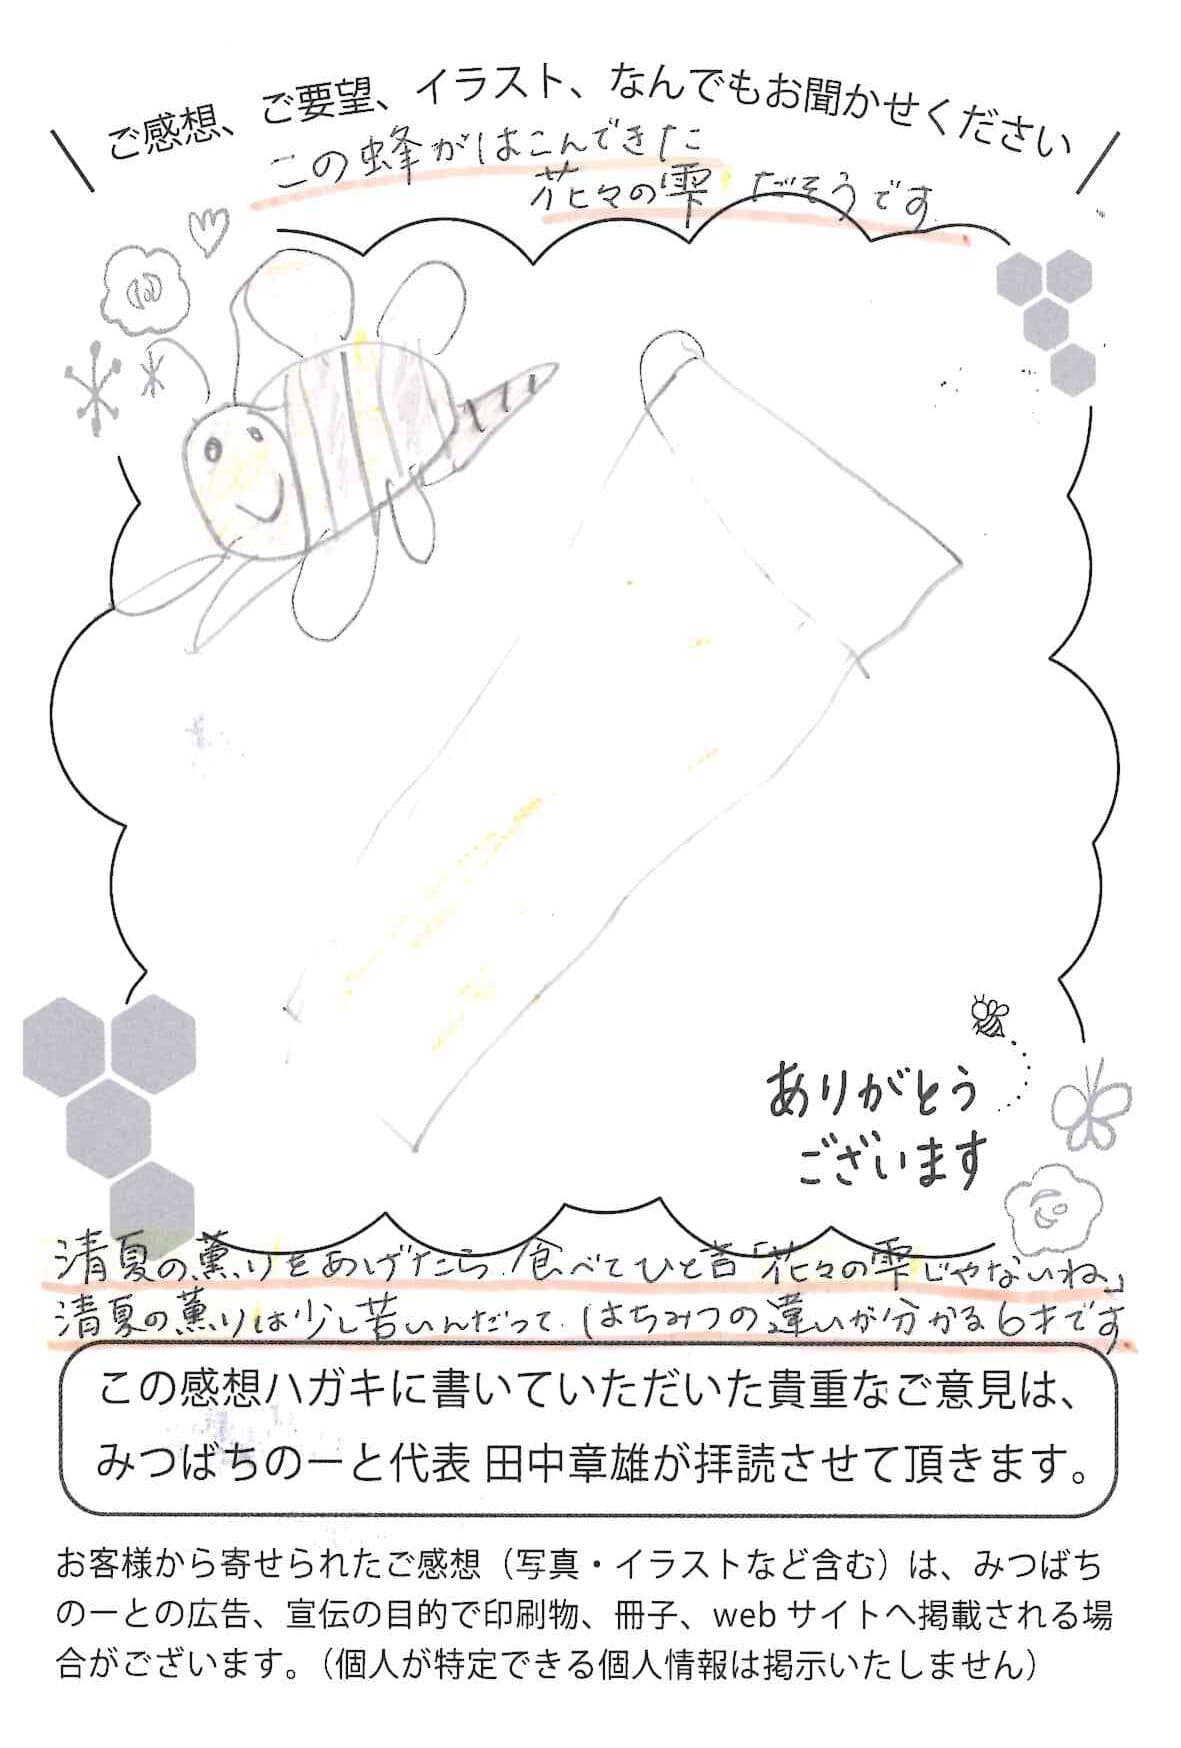 ご感想、ご要望、イラスト、なんでもお聞かせください
この蜂がはこんできた
花々の雫 だそうです
ありがとう
ございます
清夏の薫りをあげたら、食べてひと言「花々の雫じゃないね。」
清夏の薫りは少し苦いんだって。はちみつの違いが分かる6才です
この感想ハガキに書いていただいた貴重なご意見は、
みつばちのーと代表 田中章雄が拝読させて頂きます。
お客様から寄せられたご感想（写真・イラストなど含む）は、みつばち
のーとの広告、宣伝の目的で印刷物、冊子、web サイトへ掲載される場
合がございます。（個人が特定できる個人情報は掲示いたしません）